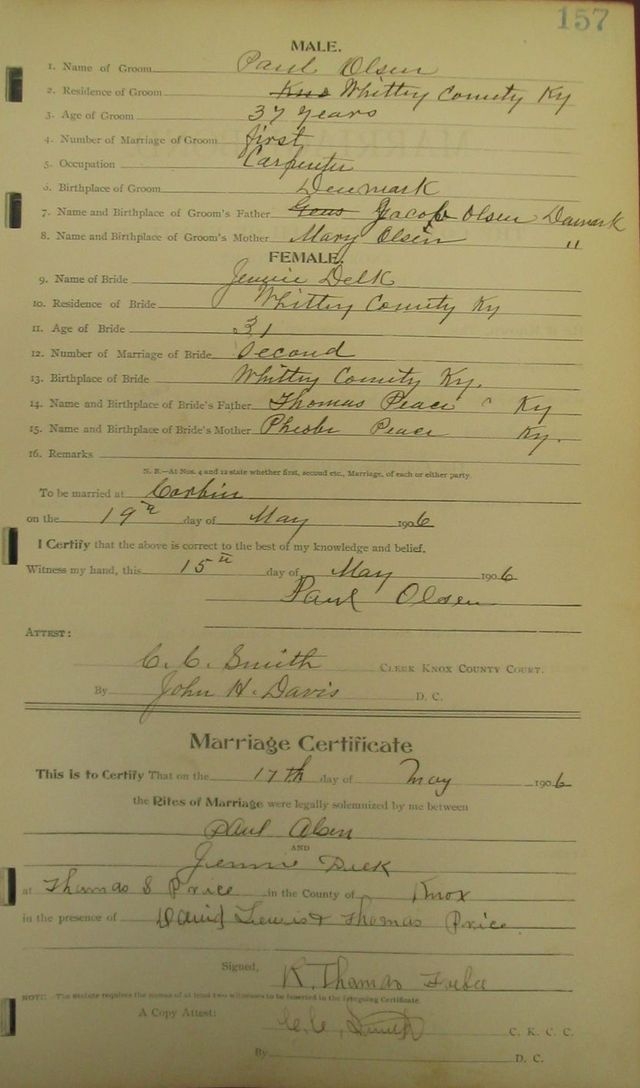 157
MALE.
1. Name of Groom Paul Olsen
2. Residence of Groom Knox Whitley County Ky
3. Age of Groom 37 years
4. Number of Marriage of Groom first
5. Occupation Carpenter
6. Birthplace of Groom Denmark
7. Name and Birthplace of Groom's Father Jacob Olsen Damark
8. Name and Birthplace of Groom's Mother Mary Olsen "
FEMALE.
9. Name of Bride Jennie Delk
10. Residence of Bride Whitley County Ky
11. Age of Bride 31
12. Number of Marriage of Bride Second
13. Birthplace of Bride Whitley County Ky.
14. Name and Birthplace of Bride's Father Thomas Peace Ky
15. Name and Birthplace of Bride's Mother Pheobe Peace Ky.
16. Remarks
N. B.—At Nos. 4 and 12 state whether first, second etc., Marriage, of each or either party.
To be married at Corbin
on the 19th day of May 1906
I Certify that the above is correct to the best of my knowledge and belief.
Witness my hand, this 15th day of May 1906
Paul Olsen
ATTEST:
C. C. Smith CLERK KNOX COUNTY COURT.
By John H. Davis D. C.
Marriage Certificate
This is to Certify That on the 17th day of May 1906
the Rites of Marriage were legally solemnized by me between
Paul Olsen
AND
Jennie Delk
at Thomas S Price in the County of Knox
in the presence of David Lewis & Thomas Price.
Signed, R. Thomas
NOTE: The statute requires the names of at least two witnesses to be inserted in the foregoing Certificate.
A Copy Attest: C. C. Smith C. K. C. C.
By D. C.